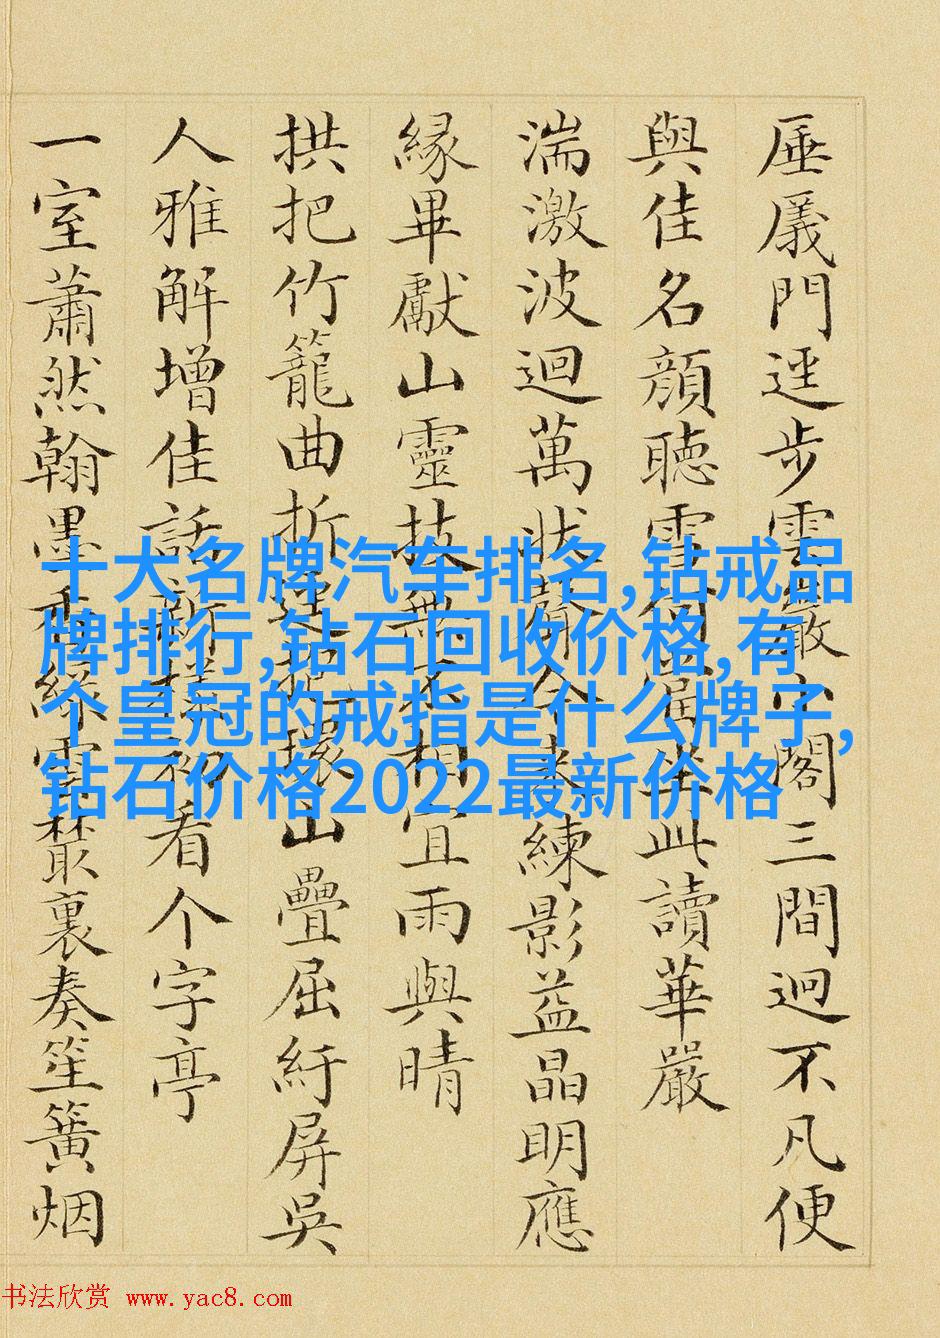 厜㕒門逕步雲巖小閣三間迥不凡便
與佳名顔聽雪何當坐此讀華嚴
湍激波迴萬狀聲今來練影益晶明應
緣畢獻山靈技無不相宜雨與晴
拱把竹籠曲折山疊屈紆屏吳
人雅解增佳話新樣初看个字亭
一室蕭然翰墨香綠雲叢裏奏笙簧烟
十大名牌汽车排名,钻戒品
牌排行,钻石回收价格,有
个皇冠的戒指是什么牌子,
钻石价格2022最新价格
书法欣赏 www.yac8.com